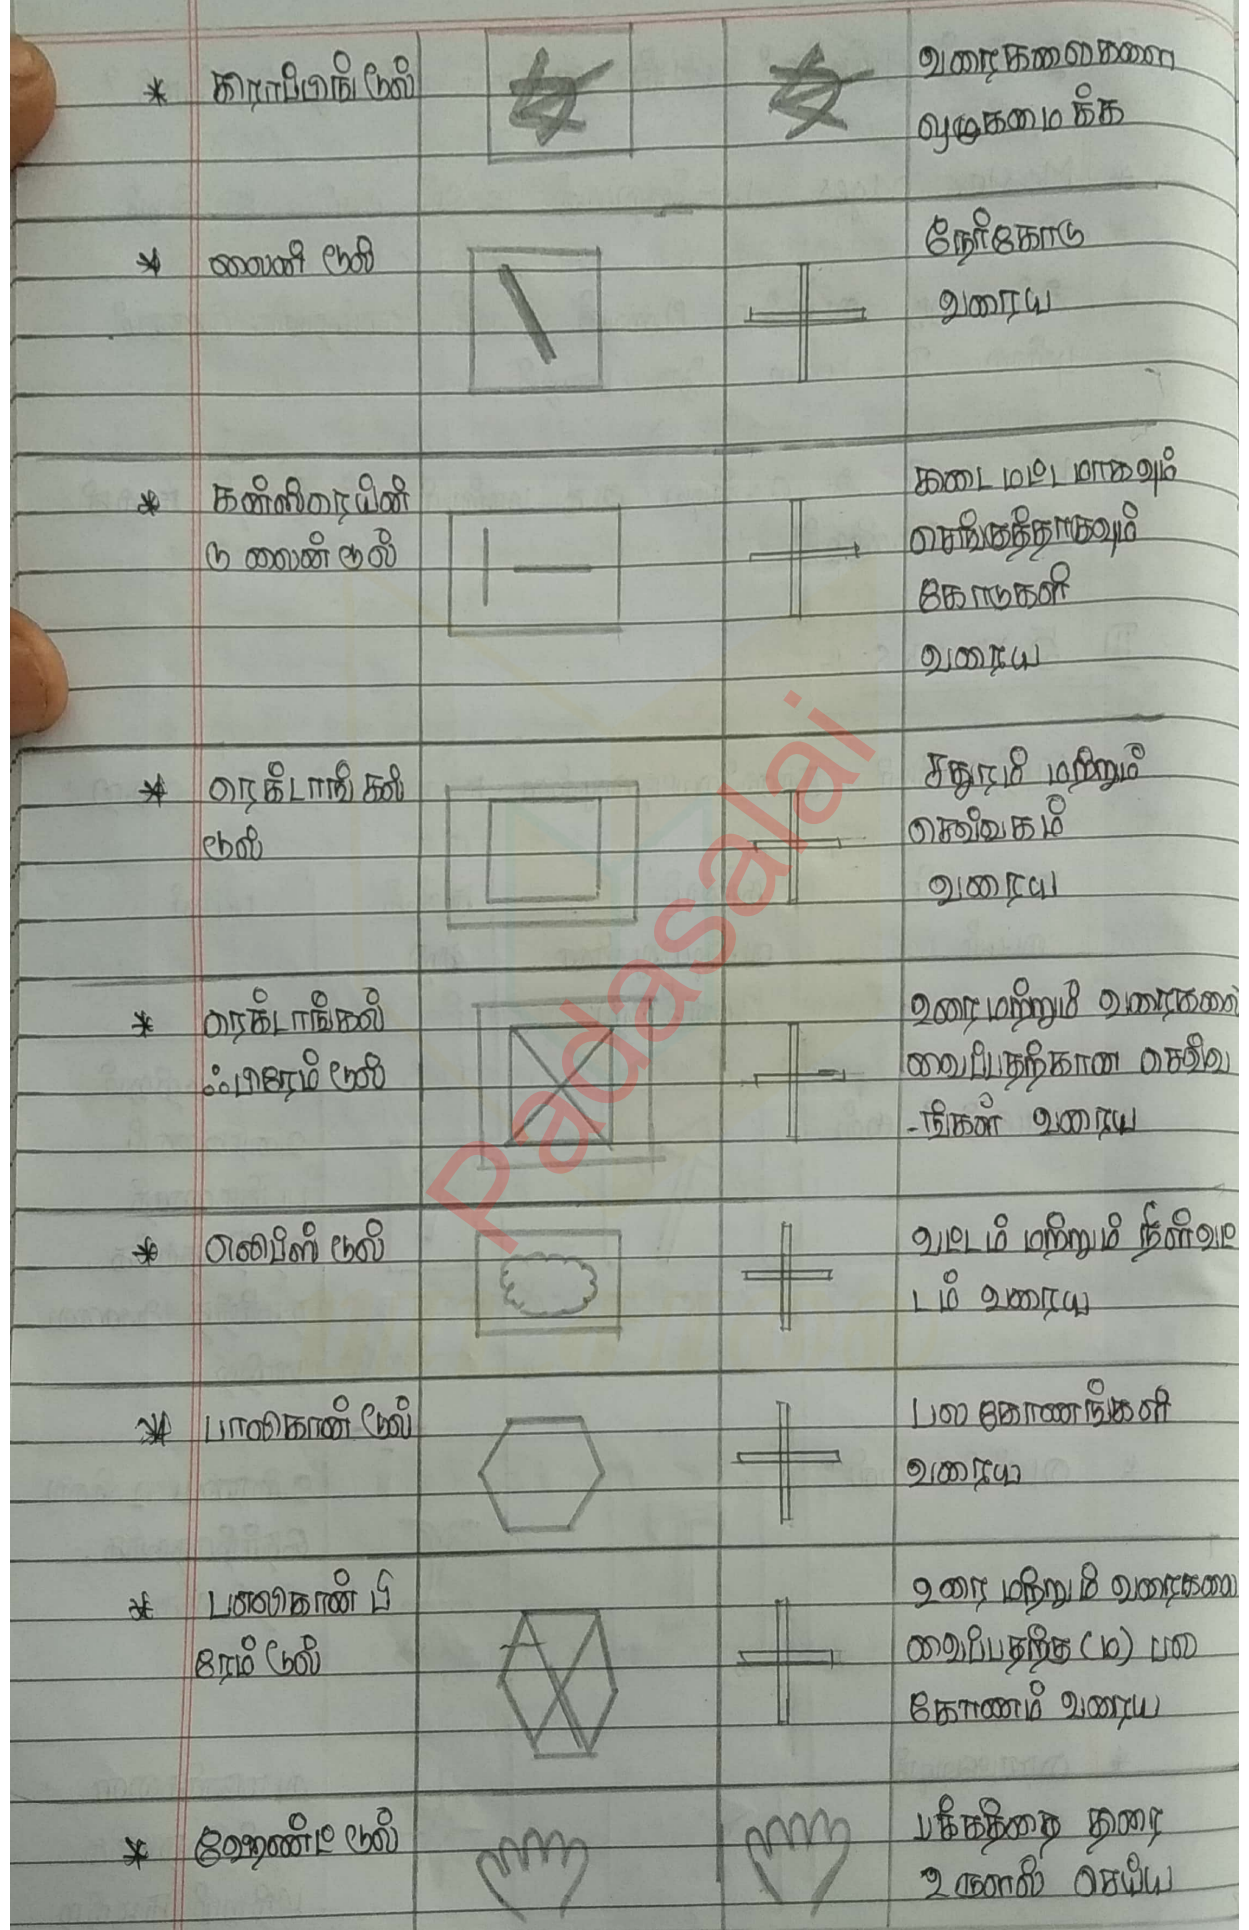 * கிராப்பிங் டூல்
வரைகலைகளை
ஒழுங்கமைக்க
* லைன் டூல்
நேர்கோடு
வரைய
* கன்ஸ்ரையின்
டு லைன் டூல்
கிடைமட்டமாகவும்
செங்குத்தாகவும்
கோடுகள்
வரைய
* ரெக்டாங்கல்
டூல்
சதுரம் மற்றும்
செவ்வகம்
வரைய
* ரெக்டாங்கல்
ஃபிரேம் டூல்
உரை மற்றும் வரைகலை
வைப்பதற்கான செவ்வ
-ங்கள் வரைய
* எலிப்ஸ் டூல்
வட்டம் மற்றும் நீள்வட்
டம் வரைய
* பாலிகொண் டூல்
பல கோணங்கள்
வரைய
* பாலிகொண் பி
ரேம் டூல்
உரை மற்றும் வரைகலை
வைப்பதற்கு (ம) பல
கோணம் வரைய
* ஹேண்ட் டூல்
பக்கத்தை திரை
உருளல் செய்ய
Padasalai